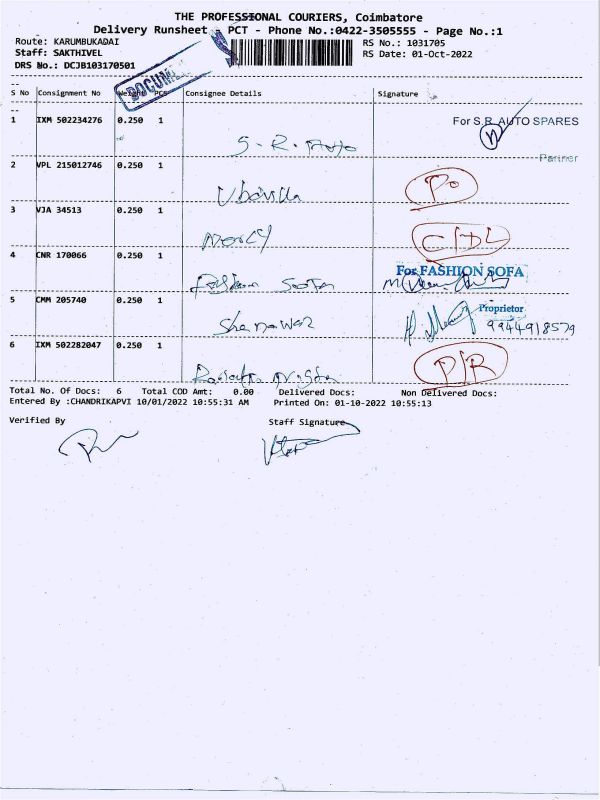 THE PROFESSIONAL COURIERS, Coimbatore
Delivery Runsheet PCT - Phone No.:0422-3505555 - Page No.:1
Route: KARUMBUKADAI RS No.: 1031705
Staff: SAKTHIVEL RS Date: 01-Oct-2022
DRS No.: DCJB103170501
DOCUM
S No Consignment No Weight PCS Consignee Details Signature
1 IXM 502234276 0.250 1 S. R. Auto For S.R. AUTO SPARES
Partner
2 VPL 215012746 0.250 1
3 VJA 34513 0.250 1 Mercy
4 CNR 170066 0.250 1 Fashion Sofa For FASHION SOFA
Proprietor
5 CMM 205740 0.250 1 Shenawaz 9944918579
6 IXM 502282047 0.250 1
Total No. Of Docs: 6 Total COD Amt: 0.00 Delivered Docs: Non Delivered Docs:
Entered By :CHANDRIKAPVI 10/01/2022 10:55:31 AM Printed On: 01-10-2022 10:55:13
Verified By Staff Signature